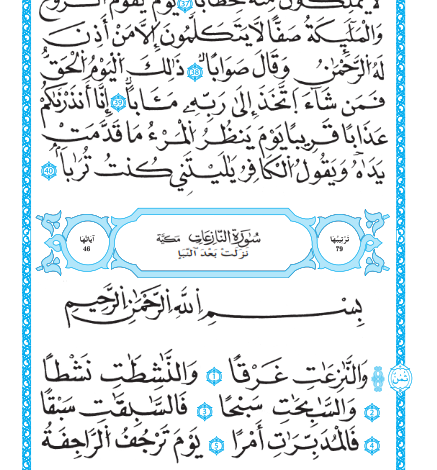 لَا يَمْلِكُونَ مِنْهُ خِطَابًا ٣٧ يَوْمَ يَقُومُ الرُّوحُ
وَالْمَلَٰٓئِكَةُ صَفًّا لَّا يَتَكَلَّمُونَ إِلَّا مَنْ أَذِنَ
لَهُ الرَّحْمَٰنُ وَقَالَ صَوَابًا ٣٨ ذَٰلِكَ الْيَوْمُ الْحَقُّ
فَمَن شَآءَ اتَّخَذَ إِلَىٰ رَبِّهِ مَـَٔابًا ٣٩ إِنَّا أَنذَرْنَاكُمْ
عَذَابًا قَرِيبًا يَوْمَ يَنظُرُ الْمَرْءُ مَا قَدَّمَتْ
يَدَاهُ وَيَقُولُ الْكَافِرُ يَٰلَيْتَنِي كُنتُ تُرَابًا ٤٠
تَرْتِيبُهَا 79 سُورَةُ النَّازِعَاتِ مَكِّيَّة آيَاتُهَا 46
نَزَلَتْ بَعْدَ النَّبَإِ
بِسْمِ اللَّهِ الرَّحْمَٰنِ الرَّحِيمِ
ثُمُنْ وَالنَّٰزِعَٰتِ غَرْقًا 1 وَالنَّٰشِطَٰتِ نَشْطًا
2 وَالسَّٰبِحَٰتِ سَبْحًا 3 فَالسَّٰبِقَٰتِ سَبْقًا
4 فَالْمُدَبِّرَٰتِ أَمْرًا 5 يَوْمَ تَرْجُفُ الرَّاجِفَةُ